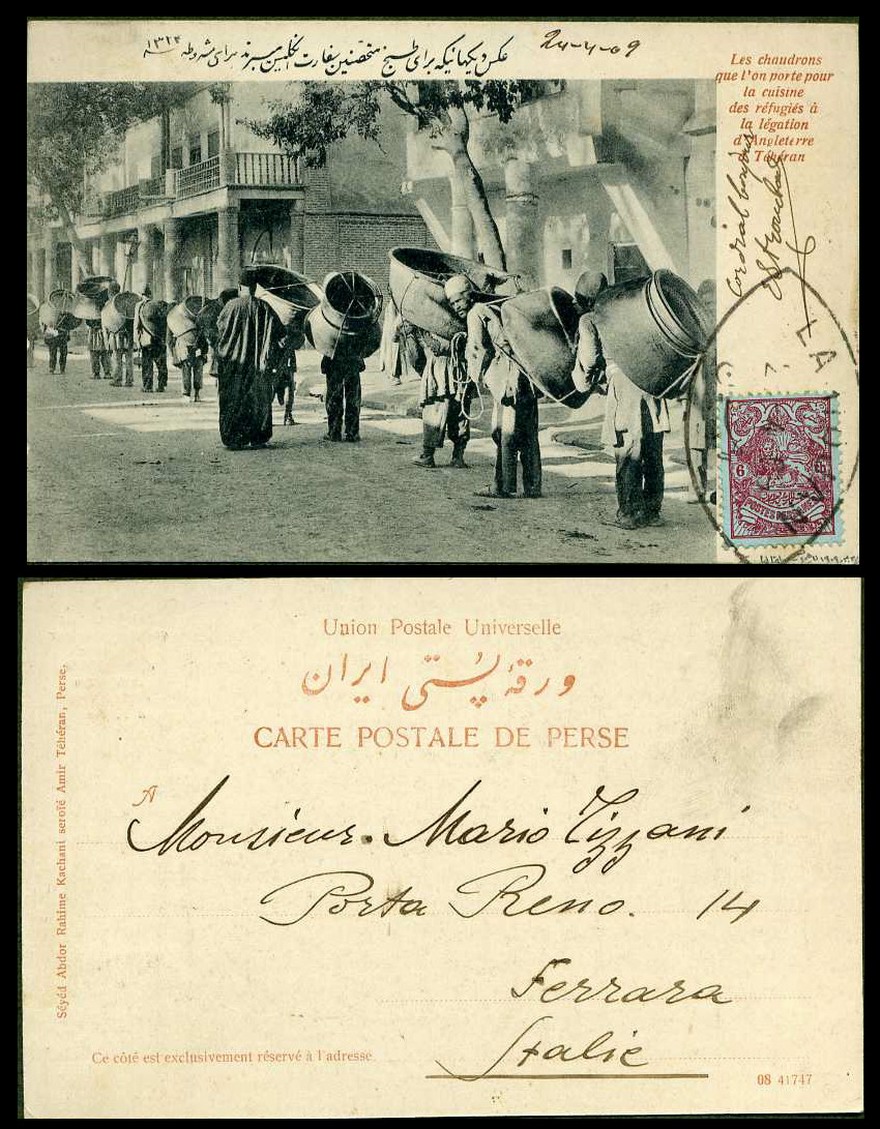 عکس دیکهائیکه برای طبخ متحصنین بسفارت انگلیس میبرند برای مشروطه ۱۳۲۴
24-4-09
Les chaudrons
que l'on porte pour
la cuisine
des réfugiés à
la légation
d'Angleterre
Téhéran
6
6
Union Postale Universelle
ورقهٔ پُستّی ایران
CARTE POSTALE DE PERSE
A
Monsieur. Mario Tizzani
Porta Reno. 14
Ferrara
Italie
Séyéd Abdor Rahime Kachani seroïé Amir Téhéran, Perse.
Ce côté est exclusivement réservé à l'adresse
08 41747